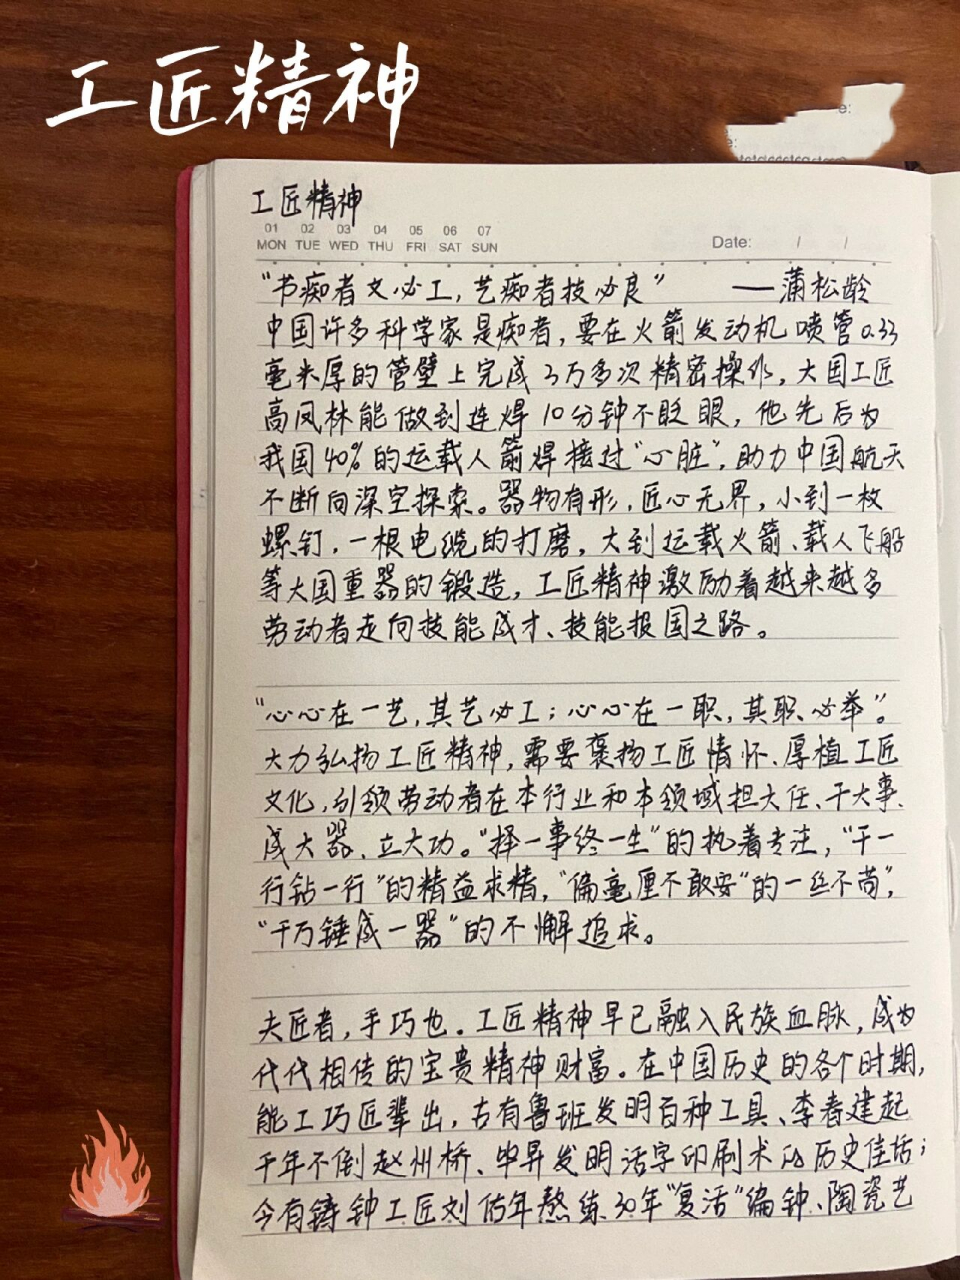 工匠精神
e:
e:
工匠精神
01 02 03 04 05 06 07
MON TUE WED THU FRI SAT SUN
Date: / /
“书痴者文必工，艺痴者技必良” ——蒲松龄
中国许多科学家是痴者，要在火箭发动机喷管0.33
毫米厚的管壁上完成3万多次精密操作，大国工匠
高凤林能做到连焊10分钟不眨眼，他先后为
我国40%的运载人箭焊接过“心脏”，助力中国航天
不断向深空探索。器物有形，匠心无界，小到一枚
螺钉，一根电缆的打磨，大到运载火箭、载人飞船
等大国重器的锻造，工匠精神激励着越来越多
劳动者走向技能成才、技能报国之路。
“心心在一艺，其艺必工；心心在一职，其职必举”。
大力弘扬工匠精神，需要褒扬工匠情怀、厚植工匠
文化，引领劳动者在本行业和本领域担大任、干大事、
成大器、立大功。“择一事终一生”的执着专注，“干一
行钻一行”的精益求精，“偏毫厘不敢安”的一丝不苟”，
“千万锤成一器”的不懈追求。
夫匠者，手巧也。工匠精神早已融入民族血脉，成为
代代相传的宝贵精神财富。在中国历史的各个时期，
能工巧匠辈出，古有鲁班发明百种工具、李春建起
千年不倒赵州桥、毕昇发明活字印刷术的历史佳话；
今有铸钟工匠刘佑年熬练30年“复活”编钟、陶瓷艺